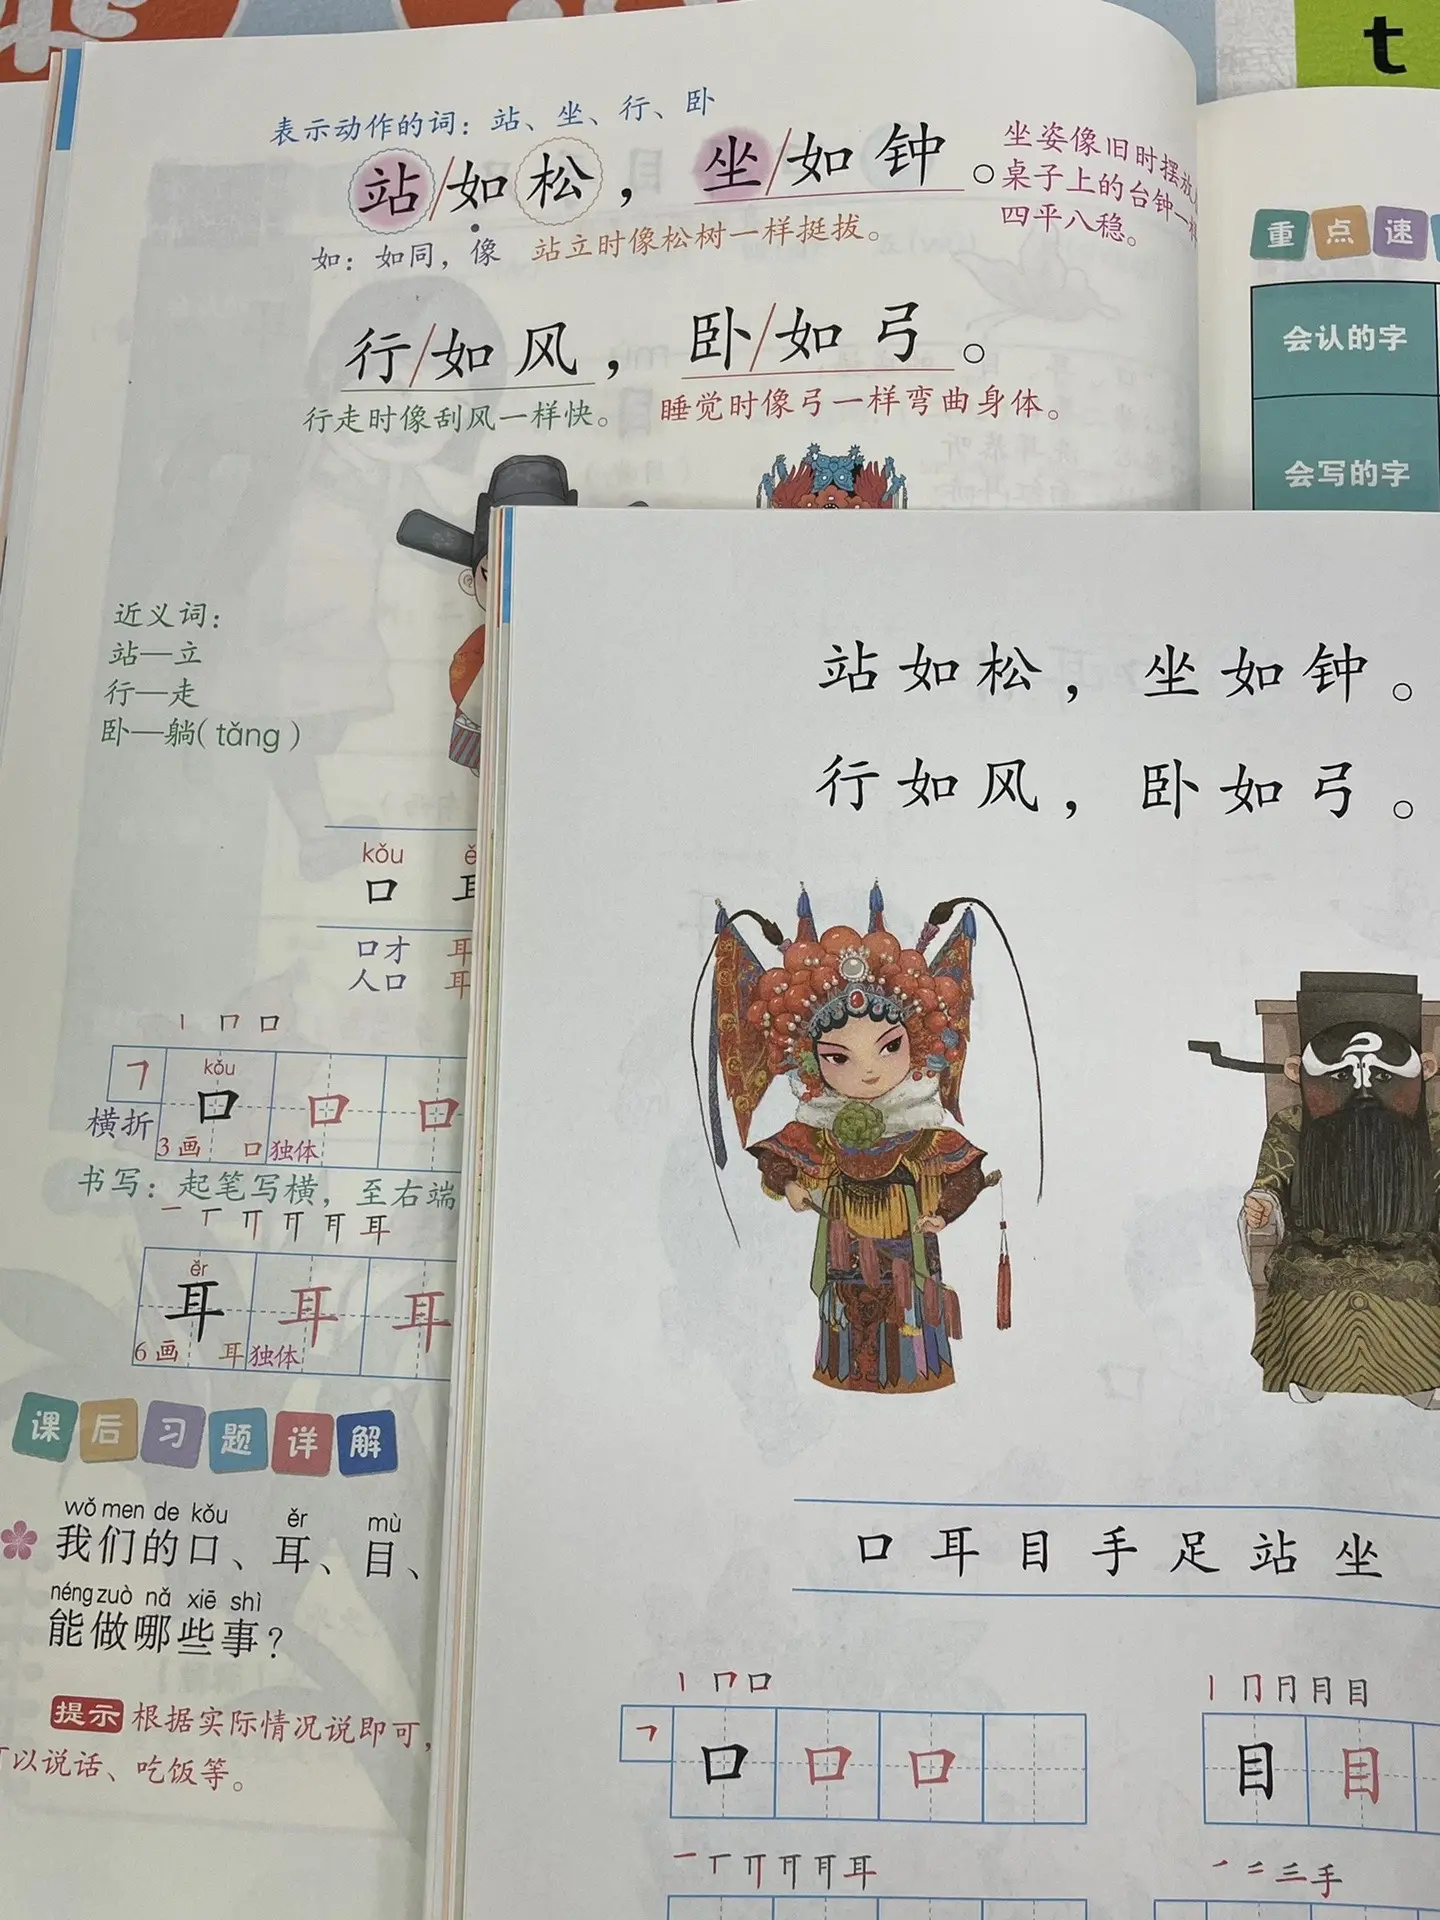 t
表示动作的词：站、坐、行、卧
站/如松，坐/如钟。
如：如同，像 站立时像松树一样挺拔。
坐姿像旧时摆放
桌子上的台钟一
四平八稳。
行/如风，卧/如弓。
行走时像刮风一样快。 睡觉时像弓一样弯曲身体。
近义词：
站—立
行—走
卧—躺(tǎng)
kǒu
口 耳
口才 耳
人口 耳
丨 冂 口
㇕ kǒu
口 口 口
横折 3画 口 独体
书写：起笔写横，至右端
一 丅 丌 耳
ěr
耳 耳 耳
6画 耳 独体
课后习题详解
wǒ men de kǒu ěr mù
我们的口、耳、目、
néng zuò nǎ xiē shì
能做哪些事？
提示 根据实际情况说即可，
可以说话、吃饭等。
重点速
会认的字
会写的字
站如松，坐如钟。
行如风，卧如弓。
口耳目手足站坐
丨 冂 口
㇕ 口 口 口
丨 冂 月 目
目 目
一 丅 丌 耳
一 二 三 手